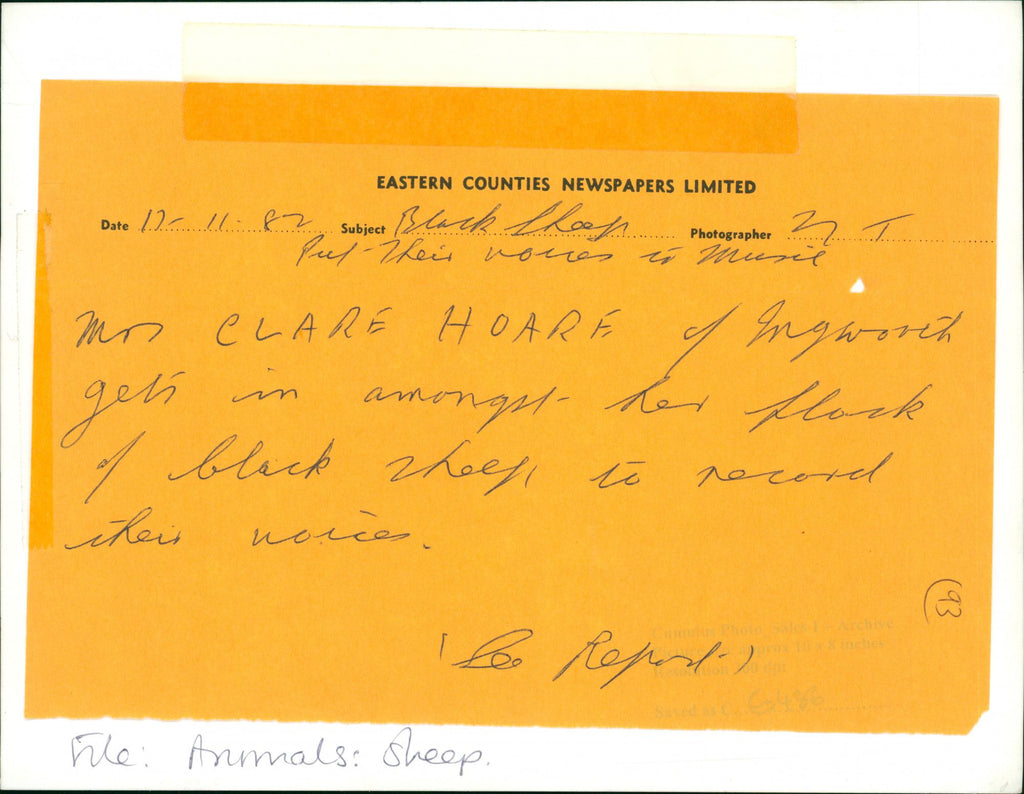 EASTERN COUNTIES NEWSPAPERS LIMITED
Date 17-11-82 Subject Black Sheep Photographer
Put Their voices to Music
Mrs CLARE HOARE of Ingworth
gets in amongst her flock
of black sheep to record
their voices.
(93
(See Report)
Cumulus Photo Sales 1 - Archive
approx 10 x 8 inches
Resolution dpi
Saved as C
File: Animals: Sheep.